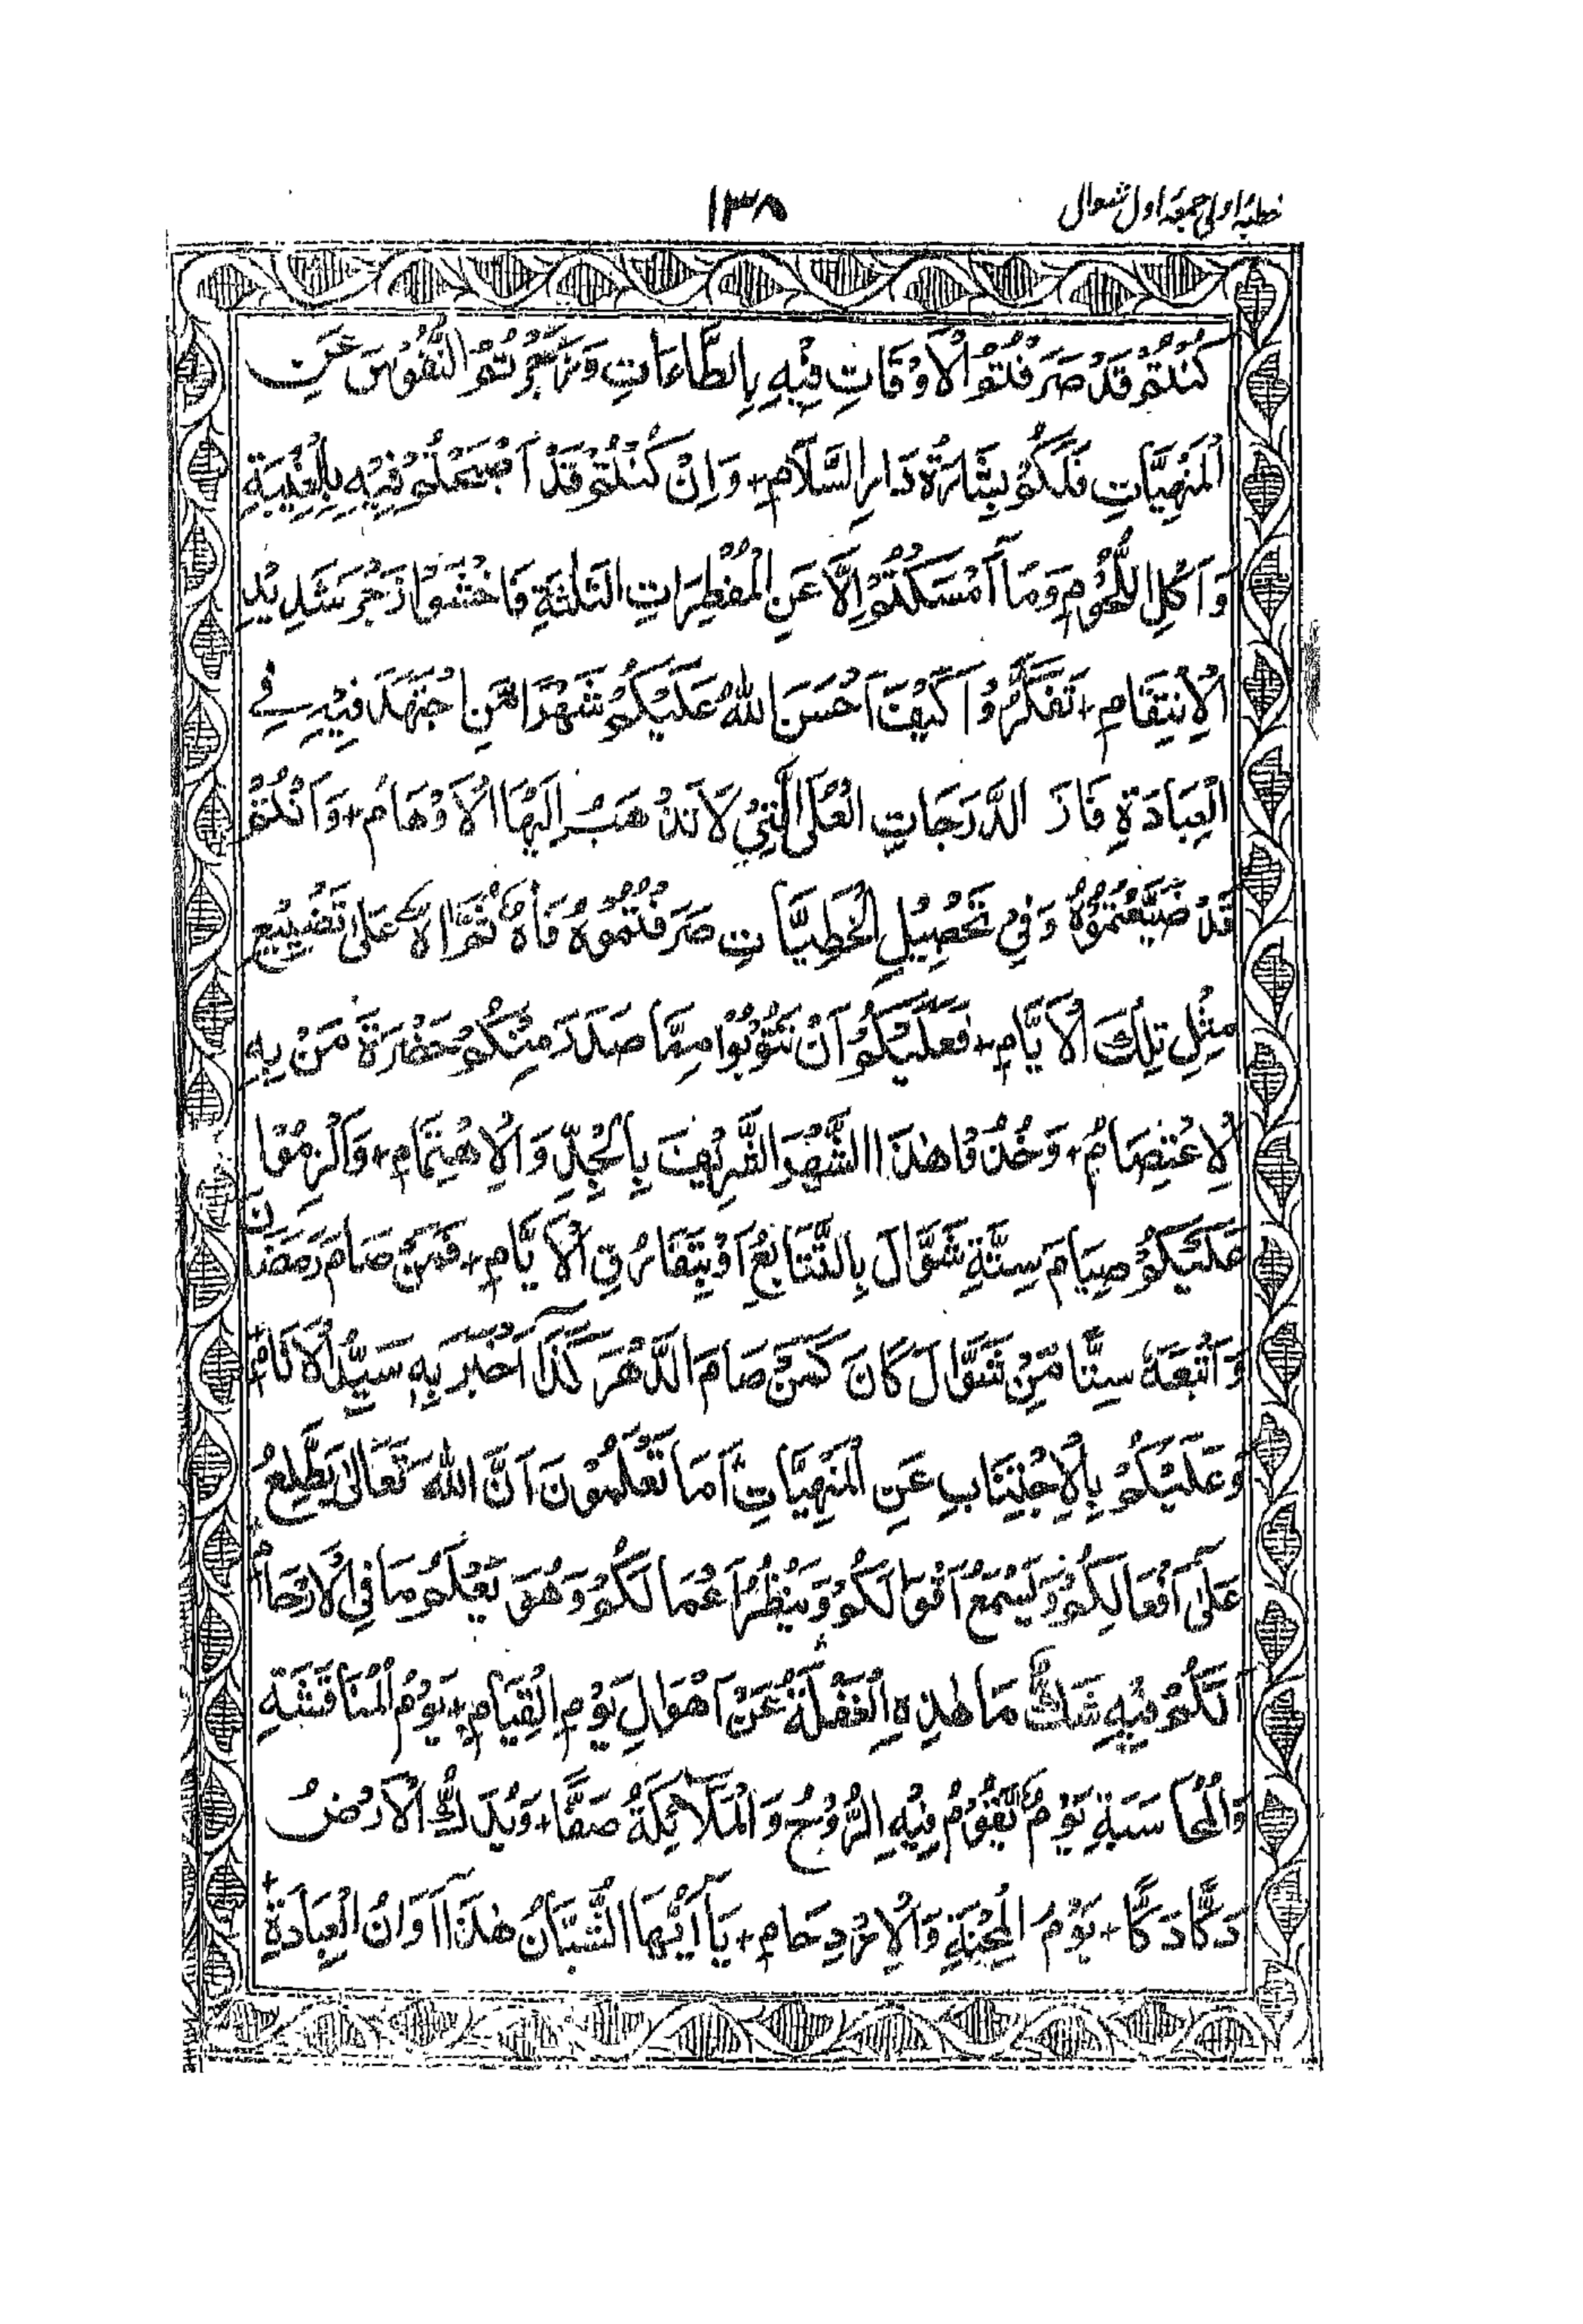 خطبۂ اولی جمعۂ اول شوال
۱۳۸
كُنْتُمْ قَدْ صَرَفْتُمُ الْاَوْقَاتِ فِيْهِ بِالطَّاعَاتِ وَزَجَرْتُمُ النُّفُوْسَ عَنِ
الْمَنْهِيَّاتِ فَلَكُمْ بِشَارَةُ دَارِ السَّلَامِ + وَاِنْ كُنْتُمْ قَدْ اَضَعْتُمْ فِيْهِ بِالْغِيْبَةِ
وَاَكْلِ اللُّحُوْمِ وَمَا اَمْسَكْتُمْ اِلَّا عَنِ الْمُفْطِرَاتِ الثَّلٰثَةِ فَاخْشَوْا زَجْرَ شَدِيْدِ
الْاِنْتِقَامِ + تَفَكَّرُوْا كَيْفَ اَحْسَنَ اللهُ عَلَيْكُمْ شَهْرًا مَّنِ اجْتَهَدَ فِيْهِ فِے
الْعِبَادَةِ فَازَ الدَّرَجَاتِ الْعُلَى الَّتِىْ لَا تَذْهَبُ اِلَيْهَا الْاَوْهَامُ + وَاَنْتُمْ
قَدْ ضَيَّعْتُمُوْهُ وَفِىْ تَحْصِيْلِ الْخَطِيَّاتِ صَرَفْتُمُوْهُ فَاٰهٌ ثُمَّ اٰهٌ عَلٰى تَضْيِيْعِ
مِثْلِ تِلْكَ الْاَيَّامِ + فَعَلَيْكُمْ اَنْ تَتُوْبُوْا مِمَّا صَدَرَ مِنْكُمْ حَضْرَةَ مَنْ بِهِ
الْاِعْتِصَامُ + وَخُذُوْا هٰذَا الشَّهْرَ الشَّرِيْفَ بِالْجِدِّ وَالْاِهْتِمَامِ + وَالْزِمُوْا
عَلَيْكُمْ صِيَامَ سِتَّةِ شَوَّالَ بِالتَّتَابُعِ اَوْ بِتَفَارُقِ الْاَيَّامِ + فَمَنْ صَامَ رَمَضَانَ
وَاَتْبَعَهٗ سِتًّا مِّنْ شَوَّالَ كَانَ كَمَنْ صَامَ الدَّهْرَ كَذَا اَخْبَرَ بِهٖ سَيِّدُ الْاَنَامِ +
وَعَلَيْكُمْ بِالْاِجْتِنَابِ عَنِ الْمَنْهِيَّاتِ اَمَا تَعْلَمُوْنَ اَنَّ اللهَ تَعَالٰى يَطَّلِعُ
عَلٰى اَفْعَالِكُمْ وَيَسْمَعُ اَقْوَالَكُمْ وَيَنْظُرُ اَعْمَالَكُمْ وَهُوَ يَعْلَمُ مَا فِى الْاَرْحَامِ +
اَلَكُمْ فِيْهِ شَكٌّ مَا هٰذِهِ الْغَفْلَةُ عَنْ اَهْوَالِ يَوْمِ الْقِيَامِ + يَوْمُ الْمُنَاقَشَةِ
وَالْمُحَاسَبَةِ يَوْمٌ يَّقُوْمُ فِيْهِ الرُّوْحُ وَالْمَلَائِكَةُ صَفًّا + وَيُدَكُّ الْاَرْضُ
دَكًّا دَكًّا + يَوْمُ الْمِحْنَةِ وَالْاِزْدِحَامِ + يَا اَيُّهَا الشُّبَّانُ هٰذَا اَوَانُ الْعِبَادَةِ +